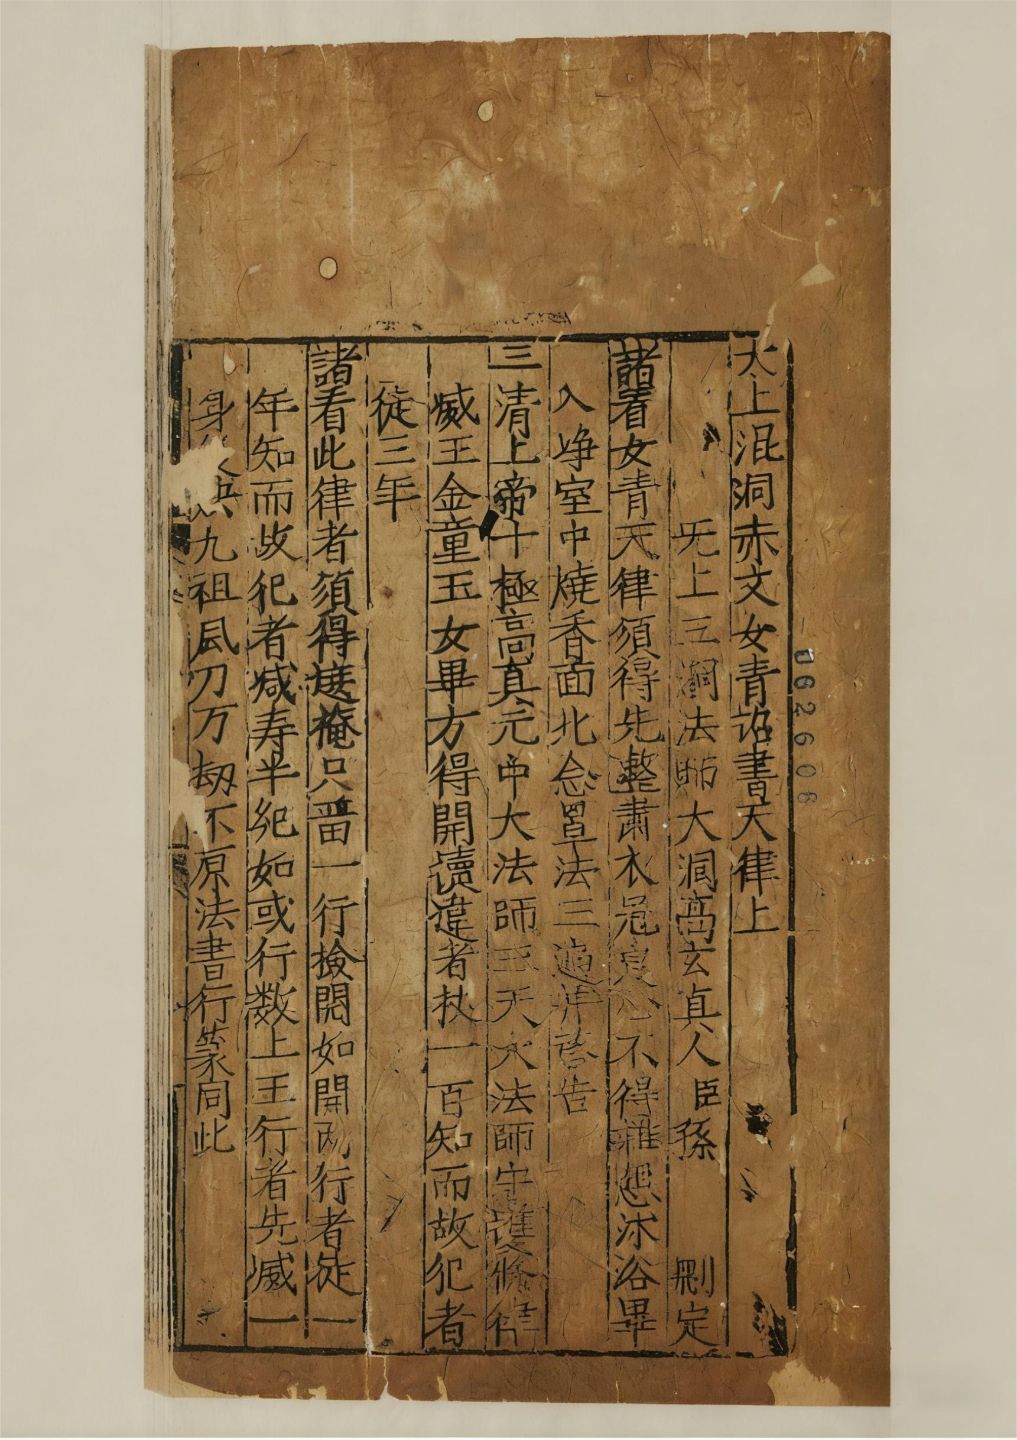 太上混洞赤文女青詔書天律上
无上三洞法師大洞高玄真人臣孫 刪定
諸看女青天律須得先整肅衣冠 不得雜 沐浴畢
入净室中燒香面北念罪法三遍 啓告
三清上帝十極高真元中大法師三天大法師守護 律
威王金童玉女畢方得開讀違者杖一百知而故犯者
徒三年
諸看此律者須得 只畨一行撿閱如開 行者徒一
年知而故犯者减寿半纪如或行数上王行者先减一
身 殃九祖風刀万劫不原法書行篆同此
062606